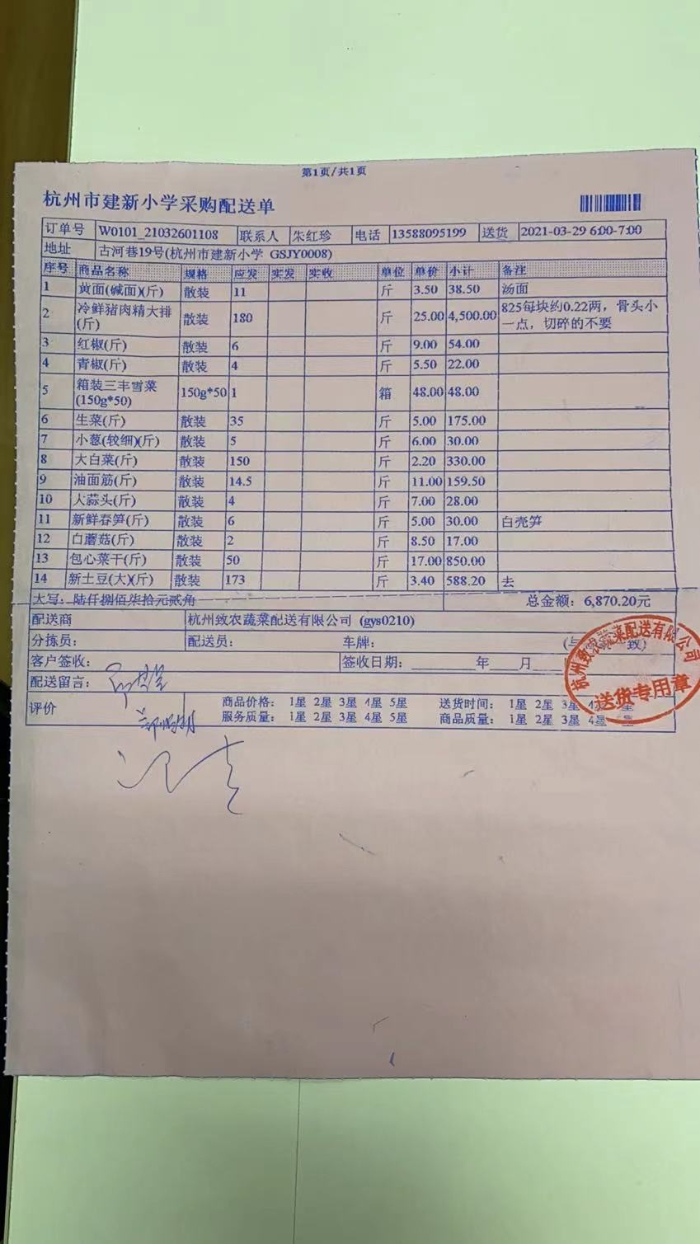 第1页/共1页
杭州市建新小学采购配送单
订单号 W0101_21032601108 联系人 朱红珍 电话 13588095199 送货 2021-03-29 6:00-7:00
地址 古河巷19号(杭州市建新小学 GSJY0008)
序号 商品名称 规格 应发 实发 实收 单位 单价 小计 备注
1 黄面(碱面)(斤) 散装 11 斤 3.50 38.50 汤面
2 冷鲜猪肉精大排(斤) 散装 180 斤 25.00 4,500.00 825每块约0.22两，骨头小一点，切碎的不要
3 红椒(斤) 散装 6 斤 9.00 54.00
4 青椒(斤) 散装 4 斤 5.50 22.00
5 箱装三丰雪菜(150g*50) 150g*50 1 箱 48.00 48.00
6 生菜(斤) 散装 35 斤 5.00 175.00
7 小葱(较细)(斤) 散装 5 斤 6.00 30.00
8 大白菜(斤) 散装 150 斤 2.20 330.00
9 油面筋(斤) 散装 14.5 斤 11.00 159.50
10 大蒜头(斤) 散装 4 斤 7.00 28.00
11 新鲜春笋(斤) 散装 6 斤 5.00 30.00 白壳笋
12 白蘑菇(斤) 散装 2 斤 8.50 17.00
13 包心菜干(斤) 散装 50 斤 17.00 850.00
14 新土豆(大)(斤) 散装 173 斤 3.40 588.20 去
大写：陆仟捌佰柒拾元贰角 总金额：6,870.20元
配送商 杭州致农蔬菜配送有限公司 (gys0210)
分拣员： 配送员： 车牌：
客户签收： 签收日期： 年 月
配送留言：
评价 商品价格： 1星 2星 3星 4星 5星 送货时间： 1星 2星 3星 4星
服务质量： 1星 2星 3星 4星 5星 商品质量： 1星 2星 3星 4星
杭州致农蔬菜配送有限公司
送货专用章